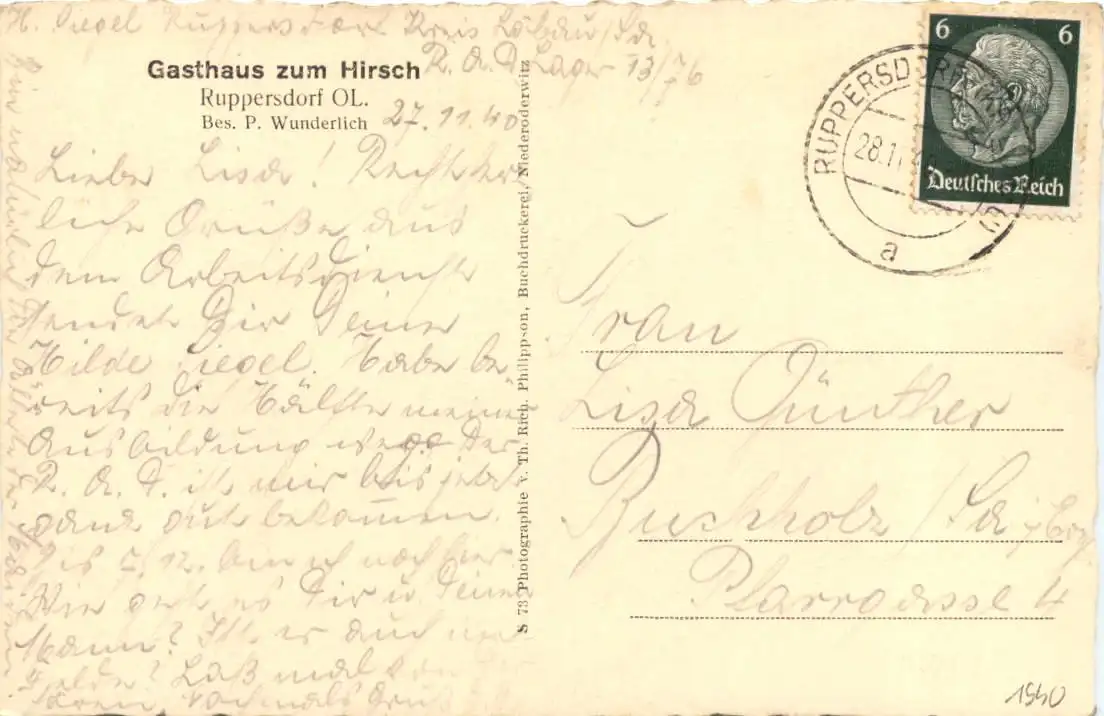 H. Siegel Ruppersdorf Kreis Löbau/Sa
R. A. D. Lager 13/76
Gasthaus zum Hirsch
Ruppersdorf OL.
Bes. P. Wunderlich
27.11.40
Liebe Lisa! Recht herz
liche Grüße aus
dem Arbeitsdienst
sendet Dir Deine
Hilde Siegel. Habe be-
reits die Hälfte meiner
Ausbildung weg. Der
R. A. D. ist mir bis jetzt
ganz gut bekommen.
Bis 5.12. bin ich noch hier.
Wie geht es Dir u. Deinem
Mann? Ist er auch im
Felde? Laß mal von
hören. Nochmals Gruß
S 73 Photographie v. Th. Rich. Philippson, Buchdruckerei, Niederoderwitz
6 6
Deutsches Reich
RUPPERSDORF
28.11.
a
Frau
Lisa Günther
Buchholz / Sa
Pfarrgasse 4
1940